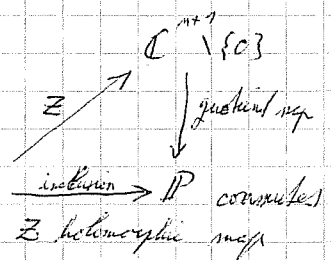 ℂⁿ⁺¹ \ {0}
Z
quotient map
inclusion ℙ commutes
Z holomorphic map